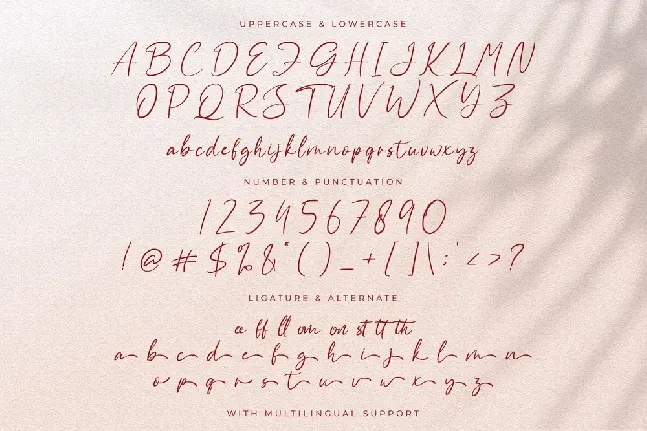 UPPERCASE & LOWERCASE
A B C D E F G H I J K L M N
O P Q R S T U V W X Y Z
a b c d e f g h i j k l m n o p q r s t u v w x y z
NUMBER & PUNCTUATION
1 2 3 4 5 6 7 8 9 0
! @ # $ % & * ( ) _ + [ ] \ ; ' < > ?
LIGATURE & ALTERNATE
ff ll om on st tt th
a b c d e f g h i j k l m n
o p q r s t u v w x y z
WITH MULTILINGUAL SUPPORT